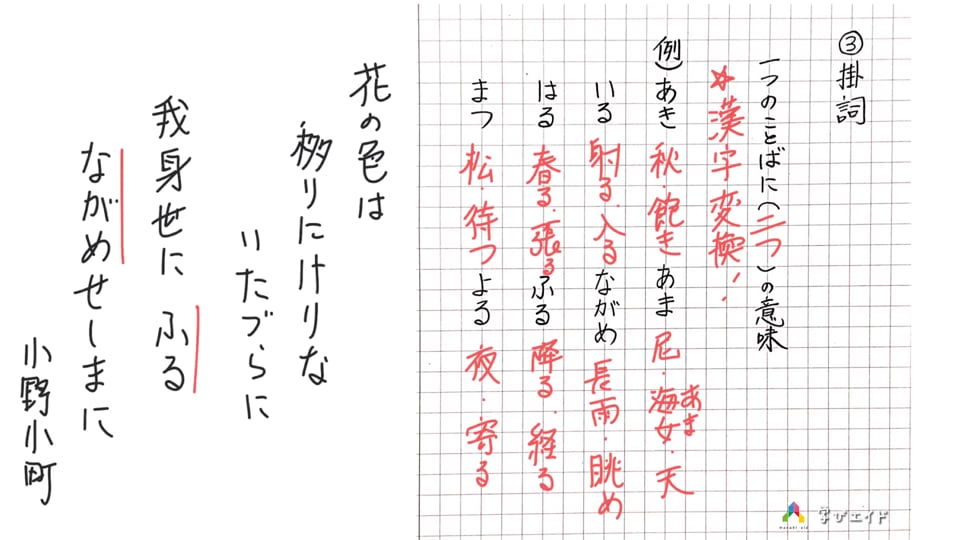 ③掛詞
一つのことばに(二つ)の意味
☆漢字変換!!
例)あき 秋・飽き あま 尼・海女・天
あま
いる 射る・入る ながめ 長雨・眺め
はる 春る・張る ふる 降る・経る
まつ 松・待つ よる 夜・寄る
花の色は
移りにけりな
いたづらに
我身世に ふる
ながめせしまに
小野小町
manabi aid
学びエイド